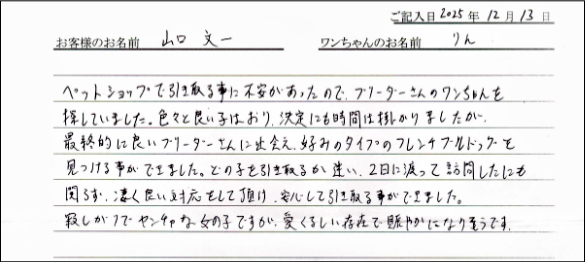 ご記入日 2025年 12月 13日
お客様のお名前 山口 文一 ワンちゃんのお名前 りん
ペットショップで引き取る事に不安があったので、ブリーダーさんのワンちゃんを
探していました。色々と良い子はおり、決定にも時間は掛かりましたが、
最終的に良いブリーダーさんに出会え、好みのタイプのフレンチブルドッグを
見つける事ができました。どの子を引き取るか迷い、2日に渡って訪問したにも
関らず、凄く良い対応をして頂け、安心して引き取る事ができました。
寂しがりでヤンチャな女の子ですが、愛くるしい存在で賑やかになりそうです。